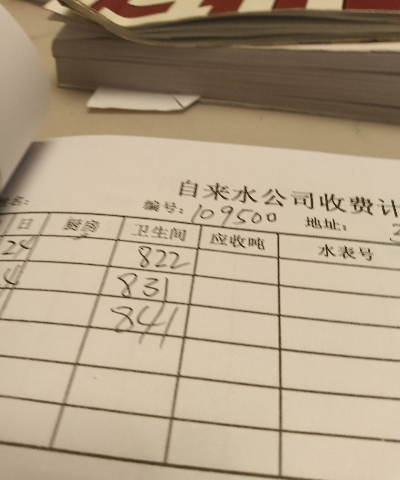 自来水公司收费计
名: 编号: 109500 地址:
日 厨房 卫生间 应收吨 水表号
24 822
4 831
841